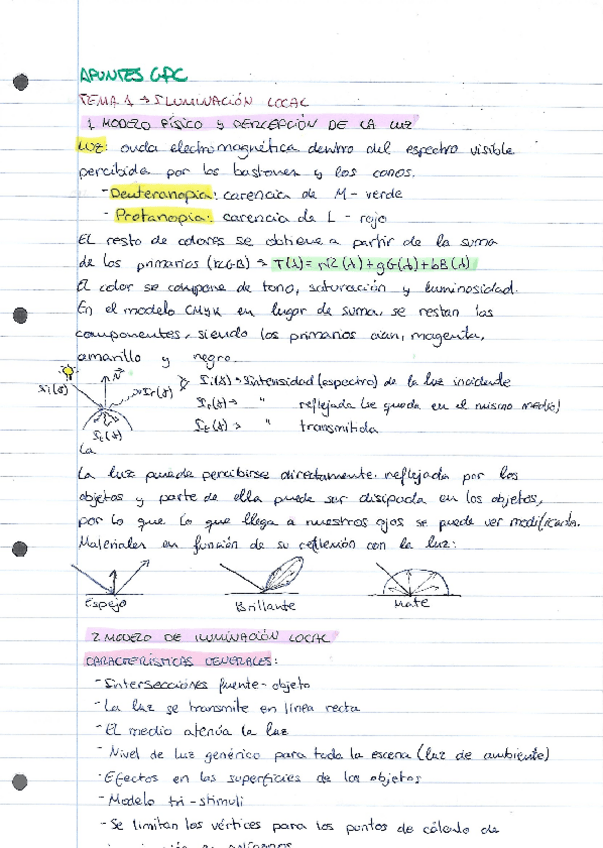 APUNTES GPC
TEMA 1 → ILUMINACIÓN LOCAL
1. MODELO FÍSICO y PERCEPCIÓN DE LA LUZ
LUZ: onda electromagnética dentro del espectro visible
percibida por los bastones y los conos.
- Deuteranopia: carencia de M - verde
- Protanopia: carencia de L - rojo
El resto de colores se obtiene a partir de la suma
de los primarios (RGB) → T(λ)= rR(λ)+gG(λ)+bB(λ)
El color se compone de tono, saturación y luminosidad.
En el modelo CMYK en lugar de suma, se restan las
componentes, siendo los primarios cian, magenta,
amarillo y negro.
Ii(λ) N Ir(λ) Ii(λ) → Intensidad (espectro) de la luz incidente
Ir(λ) → " reflejada (se queda en el mismo medio)
It(λ) It(λ) → " transmitida
La
La luz puede percibirse directamente, reflejada por los
objetos y parte de ella puede ser disipada en los objetos,
por lo que lo que llega a nuestros ojos se puede ver modificada.
Materiales en función de su reflexión con la luz:
Espejo Brillante Mate
2. MODELO DE ILUMINACIÓN LOCAL
CARACTERÍSTICAS GENERALES:
- Intersecciones fuente-objeto
- La luz se transmite en línea recta
- El medio atenúa la luz
- Nivel de luz genérico para toda la escena (luz de ambiente)
- Efectos en las superficies de los objetos
- Modelo tri-stimuli
- Se limitan los vértices para los puntos de cálculo de